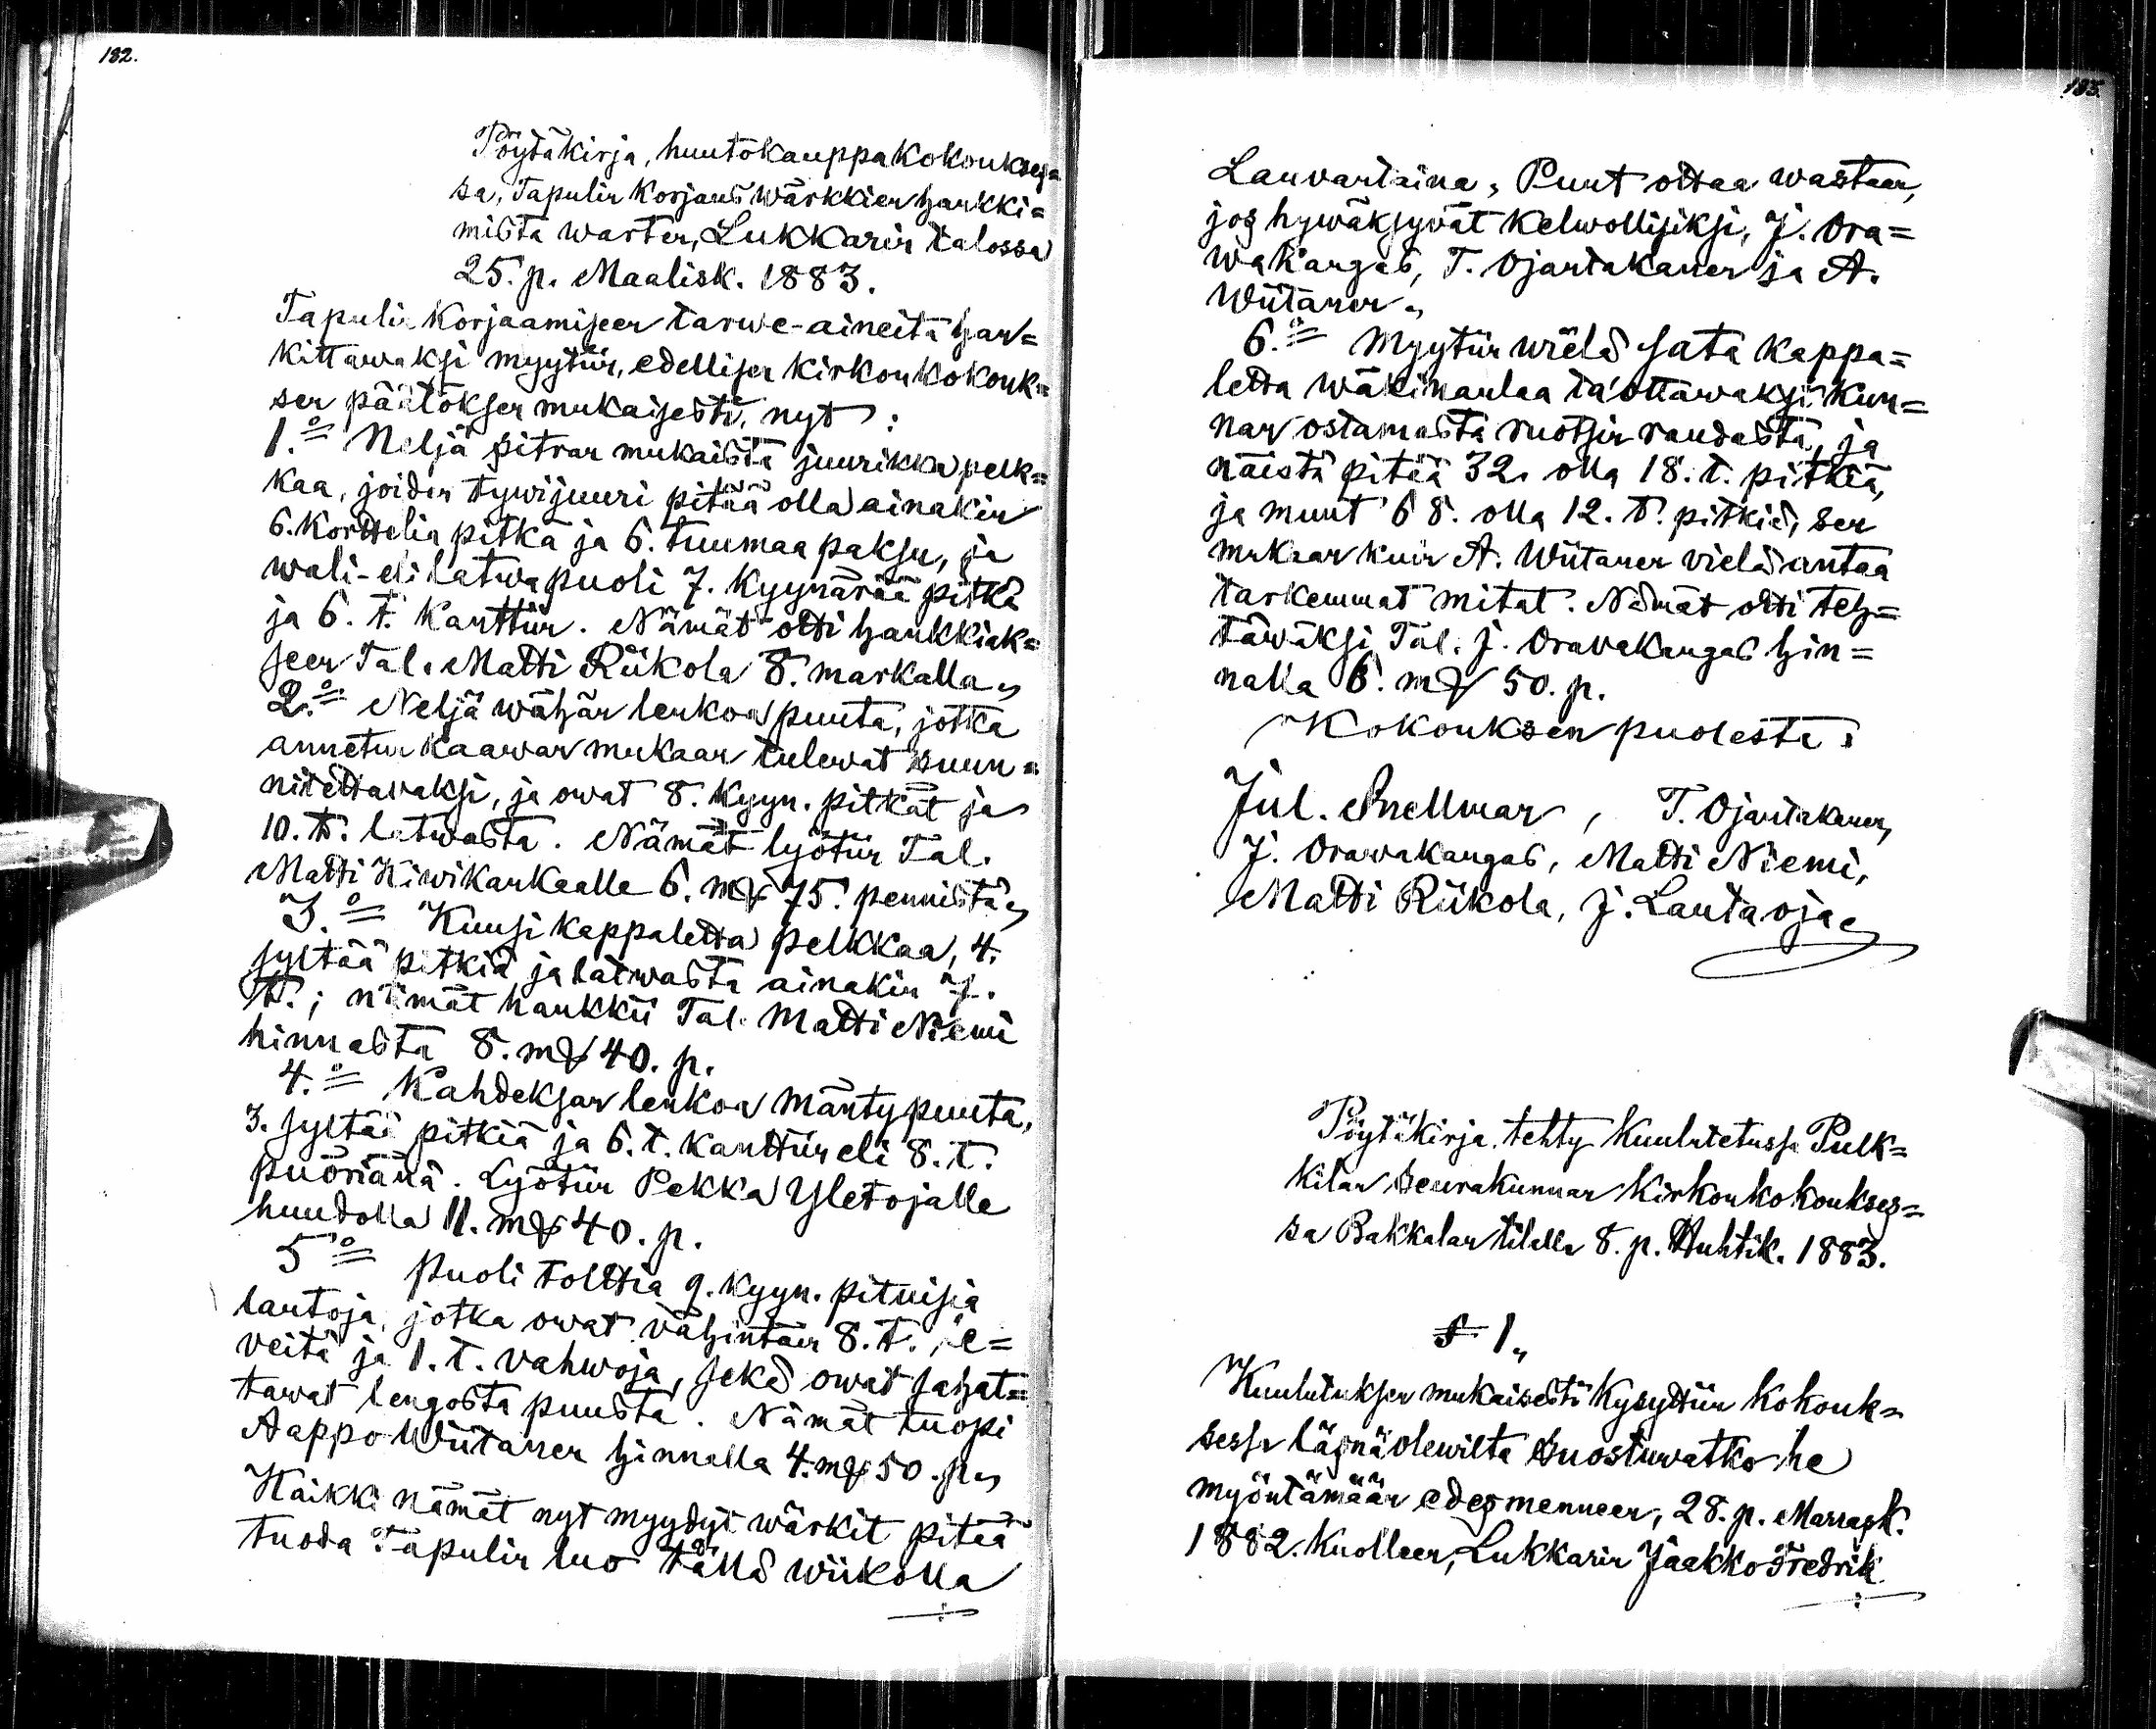 182.
Pöytäkirja, huutokauppakokoukses=
sa, Tapulin korjaus wärkkien hankki=
mista warten, Lukkarin talossa
25. p. Maalisk. 1883.
Tapulin korjaamiseen tarwe-aineita han=
kittawaksi myytiin, edellisen kirkonkokouk=
sen päätöksen mukaisesti, nyt:
1.o Neljä pitran mukaista juurikka pelk=
kaa, joiden tywijuuri pitää olla ainakin
6. korttelia pitkä ja 6. tuumaa paksu, ja
wali- eli latwapuoli 7. kyynärää pitkä
ja 6. t. kanttiin. Nämät otti hankkiak=
seen Tal. Matti Riikola 8. markalla„
2.o Neljä wähän lenkoa puuta, jotka
annetun kaawan mukaan tulewat suun=
nitettavaksi, ja owat 8. kyyn. pitkät ja
10. t. latwasta. Nämät lyötiin Tal.
Matti Kiwikankaalle 6. mk 75. pennistä„
3.o Kuusi kappaletta pelkkaa, 4.
syltää pitkiä ja latwasta ainakin 7.
t.; nämät hankkii Tal. Matti Niemi
hinnasta 8. mk 40. p.
4.o Kahdeksan lenkoa mäntypuuta,
3. syltää pitkiä ja 6. t. kanttiin eli 8. t.
pyöriänä. Lyötiin Pekka Yletojalle
huudolla 11. mk 40. p.
5o puoli tolttia 9. kyyn. pituisia
lautoja, jotka owat vähintäin 8. t. le=
veitä ja 1. t. vahwoja, sekä owat sahat=
tawat lengosta puusta. Nämät tuopi
Aappo Wiitanen hinnalla 4. mk 50. p„
Kaikki nämät nyt myydyt wärkit pitää
tuoda Tapulin luo tällä wiikolla
183.
Lauvantaina„ Puut ottaa wastaan,
jos hywäksyvät kelwollisiksi, J. Ora=
wakangas, T. Ojantakanen ja A.
Wiitanen„
6.o Myytiin wielä sata kappa=
letta wäkinaulaa ta'ottawaksi kun=
nan ostamasta ruotsin raudasta, ja
näistä pitää 32. olla 18. t. pitkiä,
ja muut 68. olla 12. t. pitkiä, sen
mukaan kuin A. Wiitanen vielä antaa
tarkemmat mitat. Nämät otti teh=
täwäksi Tal. J. Oravakangas hin=
nalla 6. mk 50. p.
Kokouksen puolesta:
Jul. Snellman, T. Ojantakanen,
J. Orawakangas, Matti Niemi,
Matti Riikola, J. Lautaoja„
Pöytäkirja, tehty kuulutetussa Pulk=
kilan seurakunnan kirkonkokoukses=
sa Bakkalan tilalla 8. p. Huhtik. 1883.
§ 1„
Kuulutuksen mukaisesti kysyttiin kokouk=
sessa läsnä olewilta suostuwatko he
myöntämään edesmenneen, 28. p. Marrask.
1882. kuolleen, Lukkarin Jaakko Fredrik